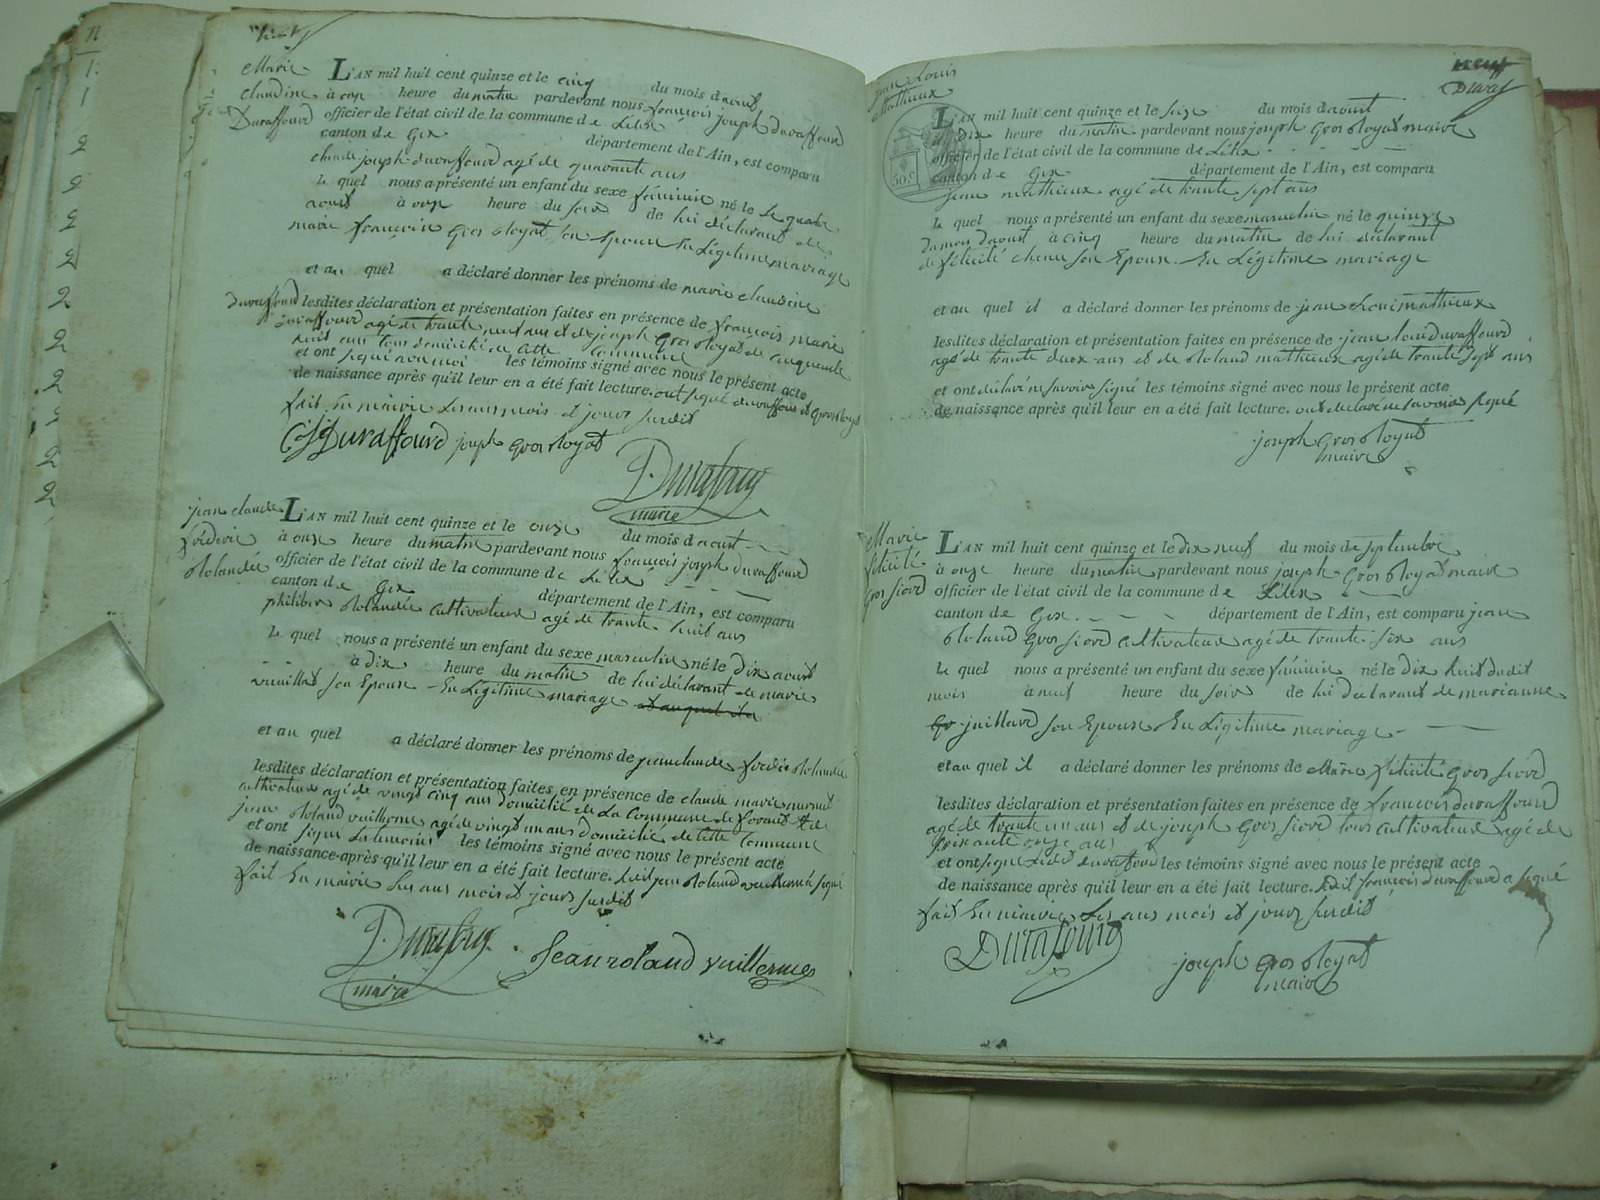 Marie
claudine
Duraffourd
L'AN mil huit cent quinze et le cinq du mois d'aout
à onze heure du matin pardevant nous françois joseph duraffourd
officier de l'état civil de la commune de Lélex
canton de Gex département de l'Ain, est comparu
claude joseph duraffourd agé de quarante ans
le quel nous a présenté un enfant du sexe féminin né le le quatre
aout à onze heure du soir de lui déclarant et de
marie françoise gros Royat son Epouse En Légitime mariage
et au quel a déclaré donner les prénoms de marie claudine
duraffourd lesdites déclaration et présentation faites en présence de françois marie
duraffourd agé de trante neuf ans et de joseph Gros Royat de cinquante
huit ans tous domicilié de Cette Commune
et ont signé non moi les témoins signé avec nous le présent acte
de naissance après qu'il leur en a été fait lecture. ont signé duraffourd et gros Royat
fait En mairie Les ans mois et jours susdit
CJ Duraffourd joseph gros Royat
Durafour
maire
jean claude
frédéric
Rolandée
L'AN mil huit cent quinze et le onze du mois d'aout
à onze heure du matin pardevant nous françois joseph duraffourd
officier de l'état civil de la commune de Lélex
canton de Gex département de l'Ain, est comparu
philibert Rolandée cultivateur agé de trante huit ans
le quel nous a présenté un enfant du sexe masculin né le dix aout
à dix heure du matin de lui déclarant de marie
vuillet son Epouse En Légitime mariage
et au quel a déclaré donner les prénoms de jean claude frédéric Rolandée
lesdites déclaration et présentation faites en présence de claude marie
cultivateur agé de vingt cinq ans domicilié de La Commune de forans et de
jean Roland vuillerme agé de vingt un ans domicilié de Cette Commune
et ont signé Les témoins les témoins signé avec nous le présent acte
de naissance après qu'il leur en a été fait lecture. Ledit jean Roland vuillerme a signé
fait En mairie Les ans mois et jours susdit
Durafour
maire
Jean roland vuillermes
neuf
Duraf
jean Louis
Mathieux
L'AN mil huit cent quinze et le seize du mois d'aout
à dix heure du matin pardevant nous joseph Gros Royat maire
officier de l'état civil de la commune de Lélex
canton de Gex département de l'Ain, est comparu
jean mathieux agé de trante sept ans
le quel nous a présenté un enfant du sexe masculin né le quinze
du mois d'aout à cinq heure du matin de lui déclarant
de félicité chenu son Epouse En Légitime mariage
et au quel il a déclaré donner les prénoms de jean Loui mathieux
lesdites déclaration et présentation faites en présence de jean loui duraffourd
agé de trante deux ans et de Roland mathieux agé de trante sept ans
et ont déclaré ne savoir signé les témoins signé avec nous le présent acte
de naissance après qu'il leur en a été fait lecture. ont déclaré ne savoir signé
joseph gros Royat
maire
Marie
félicité
Gros fiord
L'AN mil huit cent quinze et le dix neuf du mois de septembre
à onze heure du matin pardevant nous joseph Gros Royat maire
officier de l'état civil de la commune de Lélex
canton de Gex département de l'Ain, est comparu jean
Roland Gros fiord cultivateur agé de trante six ans
le quel nous a présenté un enfant du sexe féminin né le dix huit dudit
mois à neuf heure du soir de lui déclarant de marianne
juillard son Epouse En Légitime mariage
et au quel il a déclaré donner les prénoms de Marie félicité Gros fiord
lesdites déclaration et présentation faites en présence de françois duraffourd
agé de trante un ans et de joseph Gros fiord tous cultivateur agé de
soixante onze ans
et ont signé Ledit duraffourd les témoins signé avec nous le présent acte
de naissance après qu'il leur en a été fait lecture. Ledit françois duraffourd a signé
fait En mairie Les ans mois et jours susdit
Durafourd
joseph gros Royat
maire